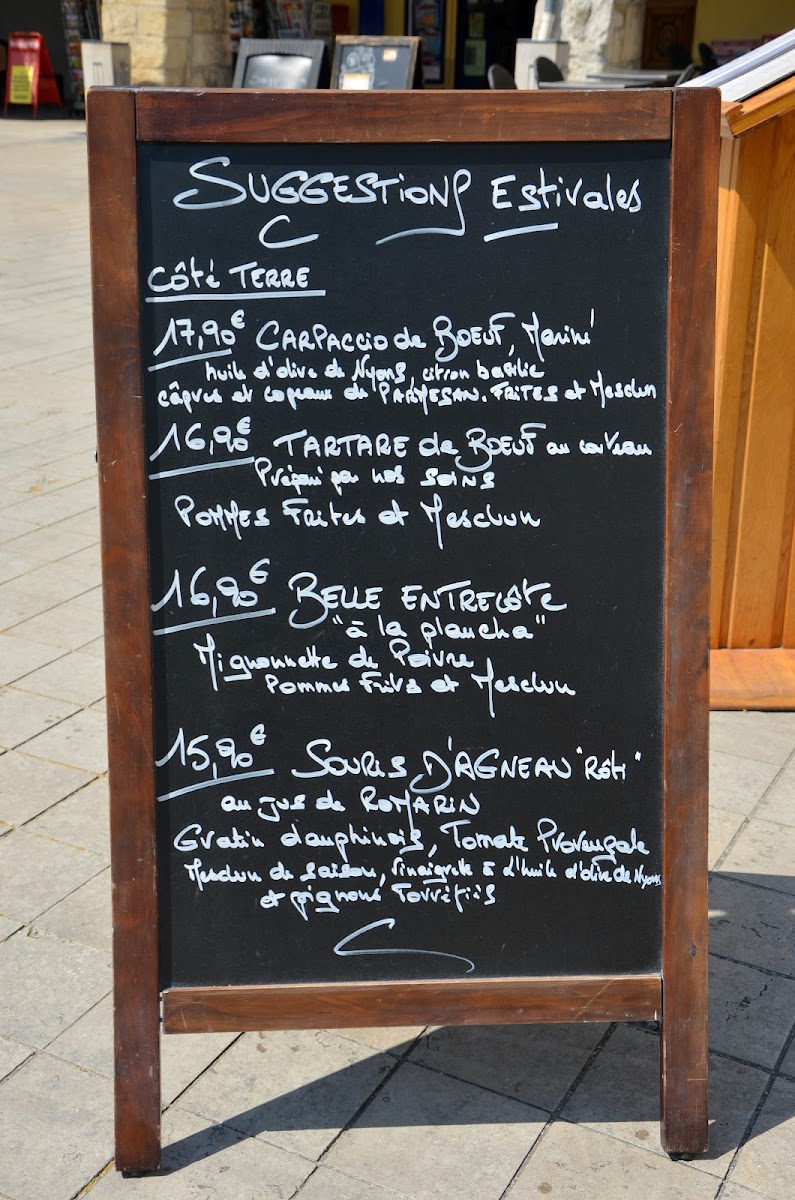 SUGGESTIONS Estivales
Côté TERRE
17,90€ CARPACCIO de BOEUF, Mariné
huile d'olive de Nyons, citron basilic
câpres et copeaux de PARMESAN. FRITES et Mesclun
16,90€ TARTARE de BOEUF au couteau
Préparé par nos soins
POMMES Frites et Mesclun
16,90€ BELLE ENTRECÔTE
"à la plancha"
Mignonnette de Poivre
Pommes Frites et Mesclun
15,90€ SOURIS D'AGNEAU "Rôti"
au jus de ROMARIN
Gratin dauphinois, Tomate Provençale
Mesclun de saison, Vinaigrette à L'huile d'olive de Nyons
et pignons Torréfiés